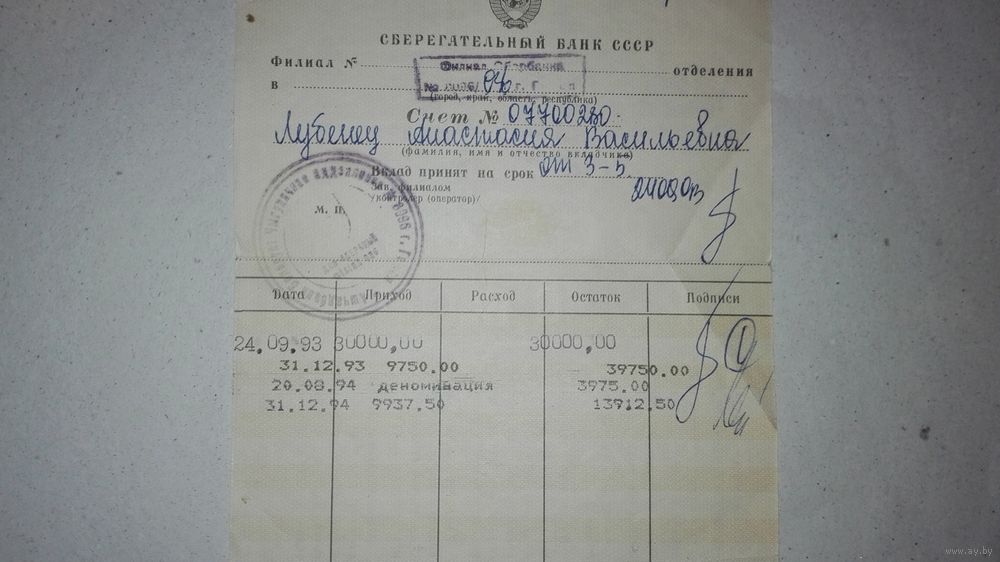 СБЕРЕГАТЕЛЬНЫЙ БАНК СССР
Филиал № Филиал Сбербанка отделения
в № 8096/ 046 г. Г
(город, край, область, республика)
Счет № 07700280
Лубенец Анастасия Васильевна
(фамилия, имя и отчество вкладчика)
Вклад принят на срок от 3-5
Зав. филиалом
/контролер (оператор)/
М. П.
Дата Приход Расход Остаток Подписи
24.09.93 30000,00 30000,00
31.12.93 9750.00 39750.00
20.08.94 деноминация 3975.00
31.12.94 9937.50 13912.50
www.ay.by